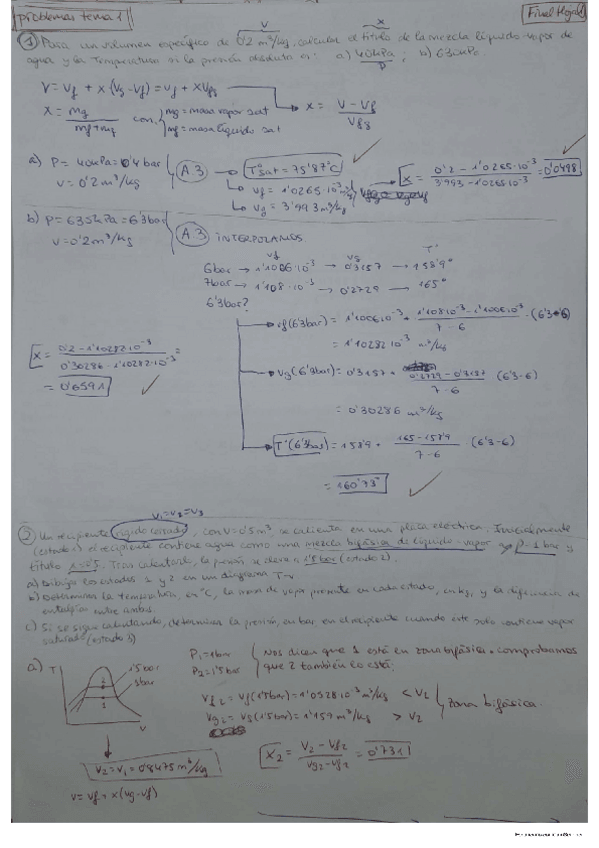 Problemas tema 1
Final Hoja 1
V
x
① Para un volumen específico de 0'2 m³/kg, calcular el título de la mezcla líquido-vapor de
agua y la temperatura si la presión absoluta es: a) 40kPa ; b) 630kPa.
V = Vf + x (Vg - Vf) = Vf + xVfg
x = mg / (mf + mg) con { mg = masa vapor sat
mf = masa líquido sat
x = (V - Vf) / Vfg
a) P = 40kPa = 0'4 bar
V = 0'2 m³/kg
A.3
Tsat = 75'87°C
Vf = 1'0265·10⁻³ m³/kg
Vg = 3'993 m³/kg
x = (0'2 - 1'0265·10⁻³) / (3'993 - 1'0265·10⁻³) = 0'0498
b) P = 630kPa = 6'3 bar
V = 0'2 m³/kg
A.3 INTERPOLAMOS
Vf Vg T°
6bar → 1'1006·10⁻³ → 0'3157 → 158'9°
7bar → 1'108·10⁻³ → 0'2729 → 165°
6'3bar?
Vf(6'3bar) = 1'1006·10⁻³ + (1'108·10⁻³ - 1'1006·10⁻³) / (7 - 6) · (6'3-6)
= 1'10282·10⁻³ m³/kg
x = (0'2 - 1'10282·10⁻³) / (0'30286 - 1'10282·10⁻³) =
= 0'6591
Vg(6'3bar) = 0'3157 + (0'2729 - 0'3157) / (7 - 6) (6'3-6)
= 0'30286 m³/kg
T°(6'3bar) = 158'9 + (165 - 158'9) / (7 - 6) (6'3-6)
= 160'73°
V₁=V₂=V₃
② Un recipiente rígido cerrado, con V=0'5m³, se calienta en una placa eléctrica. Inicialmente
(estado 1) el recipiente contiene agua como una mezcla bifásica de líquido-vapor P=1 bar y
título x=0'5. Tras calentarle, la presión se eleva a 1'5bar (estado 2).
a) Dibuja los estados 1 y 2 en un diagrama T-v
b) Determina la temperatura, en °C, la masa de vapor presente en cada estado, en kg, y la diferencia de
entalpías entre ambas.
c) Si se sigue calentando, determina la presión, en bar, en el recipiente cuando este solo contiene vapor
saturado (estado 3)
a) T
1'5bar
1bar
2
1
V
P₁=1bar
P₂=1'5bar
Nos dicen que 1 está en zona bifásica. Comprobamos
que 2 también lo está:
Vf₂ = Vf(1'5bar) = 1'0528·10⁻³ m³/kg < V₂
Vg₂ = Vg(1'5bar) = 1'159 m³/kg > V₂
Zona bifásica.
V₂ = V₁ = 0'8475 m³/kg
x₂ = (V₂ - Vf₂) / (Vg₂ - Vf₂) = 0'731
V = Vf + x(Vg - Vf)